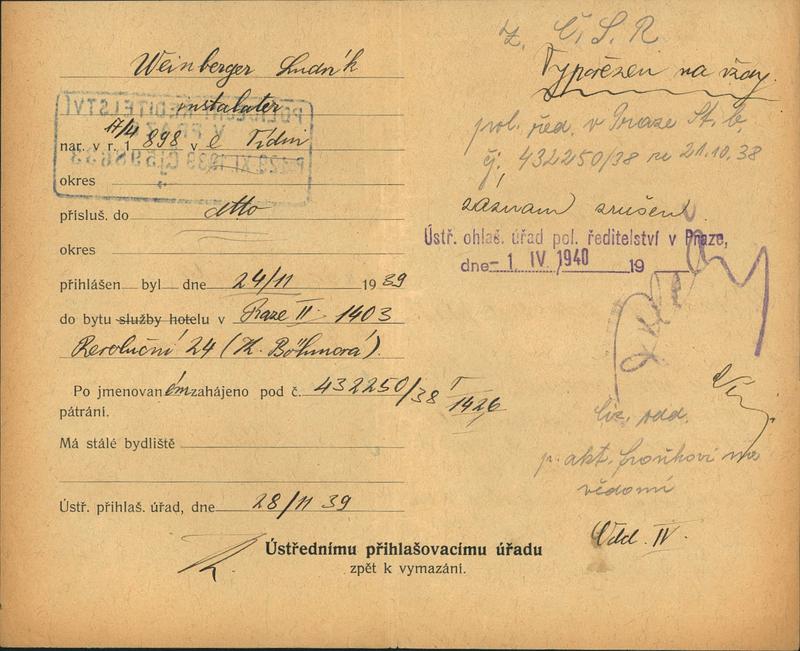 Weinberger Ludvík
instalater
nar. v r. 1 17/4 898 v Č Týdni
okres
přísluš. do dtto
okres
přihlášen byl dne 24/11 1939
do bytu služby hotelu v Praze II 1403
Revoluční 24 (H. Böhmová).
Po jmenovaném zahájeno pod č. 432250/38 1426
pátrání.
Má stálé bydliště
Ústř. přihlaš. úřad, dne 28/11 39
Ústřednímu přihlašovacímu úřadu
zpět k vymazání.
POLICEJNÍ ŘEDITELSTVÍ
V PRAZE
z Č. S. R
Vypovězen na vždy.
pol. řed. v Praze
čj. 432250/38 ze 21.10.38
záznam zrušen.
Ústř. ohlaš. úřad pol. ředitelství v Praze,
dne - 1 IV 1940 19
odd.
p. akt. na
vědomí
Odd. IV.